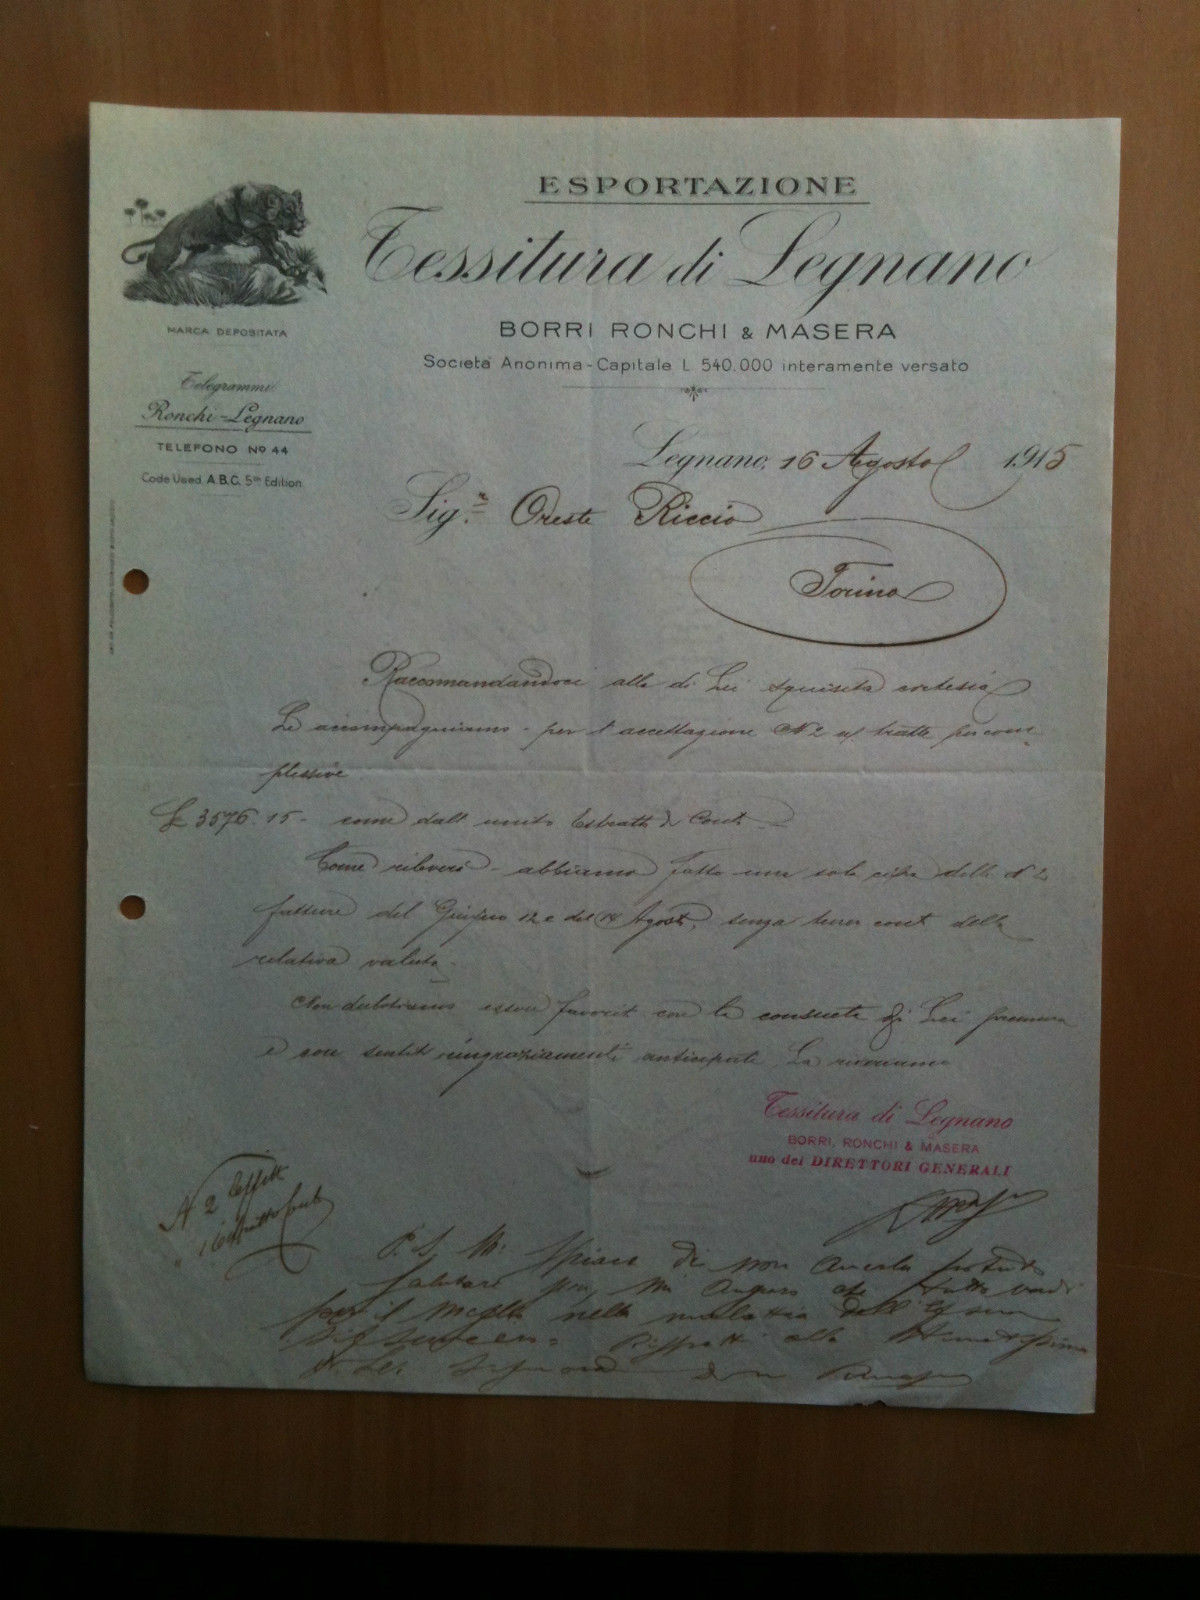 ESPORTAZIONE
Tessitura di Legnano
BORRI RONCHI & MASERA
Società Anonima - Capitale L. 540.000 interamente versato
MARCA DEPOSITATA
Telegrammi:
Ronchi-Legnano
TELEFONO No 44
Code Used A.B.C. 5th Edition
Legnano, 16 Agosto 1915
Sig.r Oreste Riccio
Torino
Raccomandandoci alla di Lei squisita cortesia
Le accompagniamo per l'accettazione No 2 tratte per com=
plessive
£ 3576.15 - come dall'unito Estratto di Conto
Come rileverà abbiamo fatto una sola cifra delle N 2
fatture del Giugno 12 e del 14 Agosto, senza tener conto della
relativa valuta.
Non dubitiamo esser favoriti con la consueta di Lei premura
e con sentiti ringraziamenti anticipati, La riveriamo
Tessitura di Legnano
BORRI, RONCHI & MASERA
uno dei DIRETTORI GENERALI
N 2 effetti
1 estratto conto
P.S. Mi spiace di non averla potuto
salutare Mi auguro che tutto vada
per il meglio nella malattia dell'
Rispetti alla Stimatissima
di Lei Signora